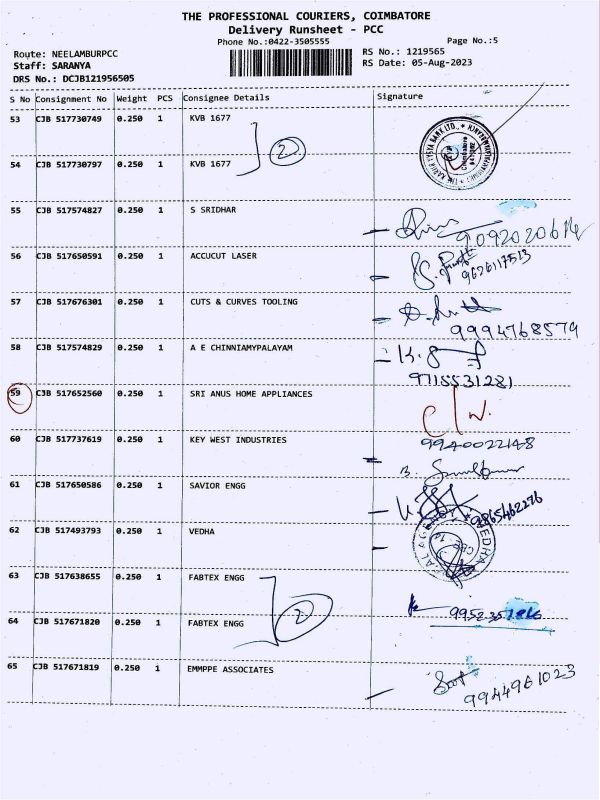 THE PROFESSIONAL COURIERS, COIMBATORE
Delivery Runsheet - PCC
Phone No.:0422-3505555 Page No.:5
Route: NEELAMBURPCC RS No.: 1219565
Staff: SARANYA RS Date: 05-Aug-2023
DRS No.: DCJB121956505
S No Consignment No Weight PCS Consignee Details Signature
53 CJB 517730749 0.250 1 KVB 1677
2
54 CJB 517730797 0.250 1 KVB 1677
55 CJB 517574827 0.250 1 S SRIDHAR
9092020614
56 CJB 517650591 0.250 1 ACCUCUT LASER
9626117513
57 CJB 517676301 0.250 1 CUTS & CURVES TOOLING
9994768579
58 CJB 517574829 0.250 1 A E CHINNIAMYPALAYAM
9715531281
59 CJB 517652560 0.250 1 SRI ANUS HOME APPLIANCES
60 CJB 517737619 0.250 1 KEY WEST INDUSTRIES
9940022148
61 CJB 517650586 0.250 1 SAVIOR ENGG
9865462276
62 CJB 517493793 0.250 1 VEDHA
VEDHA
63 CJB 517638655 0.250 1 FABTEX ENGG
2
64 CJB 517671820 0.250 1 FABTEX ENGG
65 CJB 517671819 0.250 1 EMMPPE ASSOCIATES
9944961023